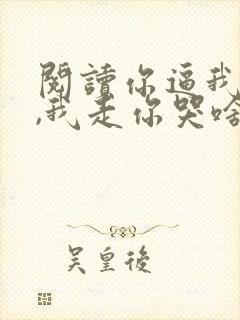 閱讀你逼我
,我走你哭啥
吴皇後